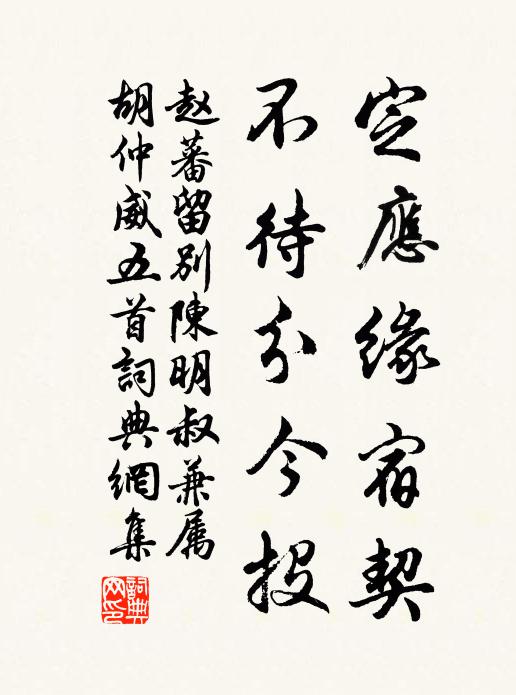 定應緣宿契
不待於今投
赵蕃留别陳明叔兼属
胡仲威五首詞典網集
詞典網印